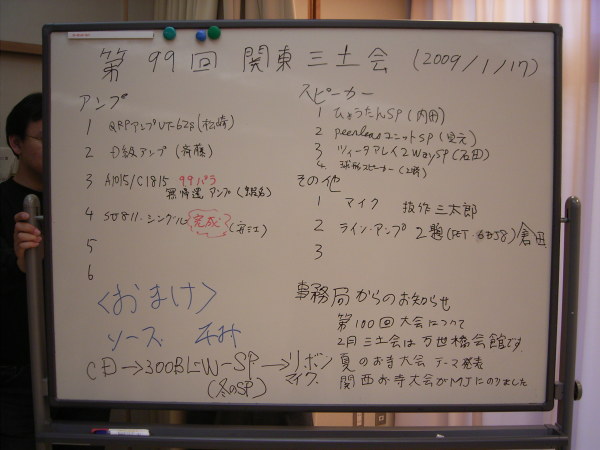 第99回 関東三土会 (2009/1/17)
アンプ
1 QRPアンプ VT-62PP(松崎)
2 D級アンプ (斉藤)
3 A1015/C1815 99パラ
無帰還アンプ
4 SV811-シングル 完成
5
6
<おまけ>
ソース
CD→300B LW-SP→リボン
(冬のSP) マイク
スピーカー
1 ひょうたんSP (内田)
2 peerlessユニットSP
3 ツィータアレイ2WaySP(石田)
4 球形スピーカー
その他
1 マイク 技作三太郎
2 ライン・アンプ 2題 倉田
3
事務局からのお知らせ
第100回大会について
2月三土会は万世橋会館です
夏のお寺大会 テーマ発表
関西お寺大会がMJにのりました